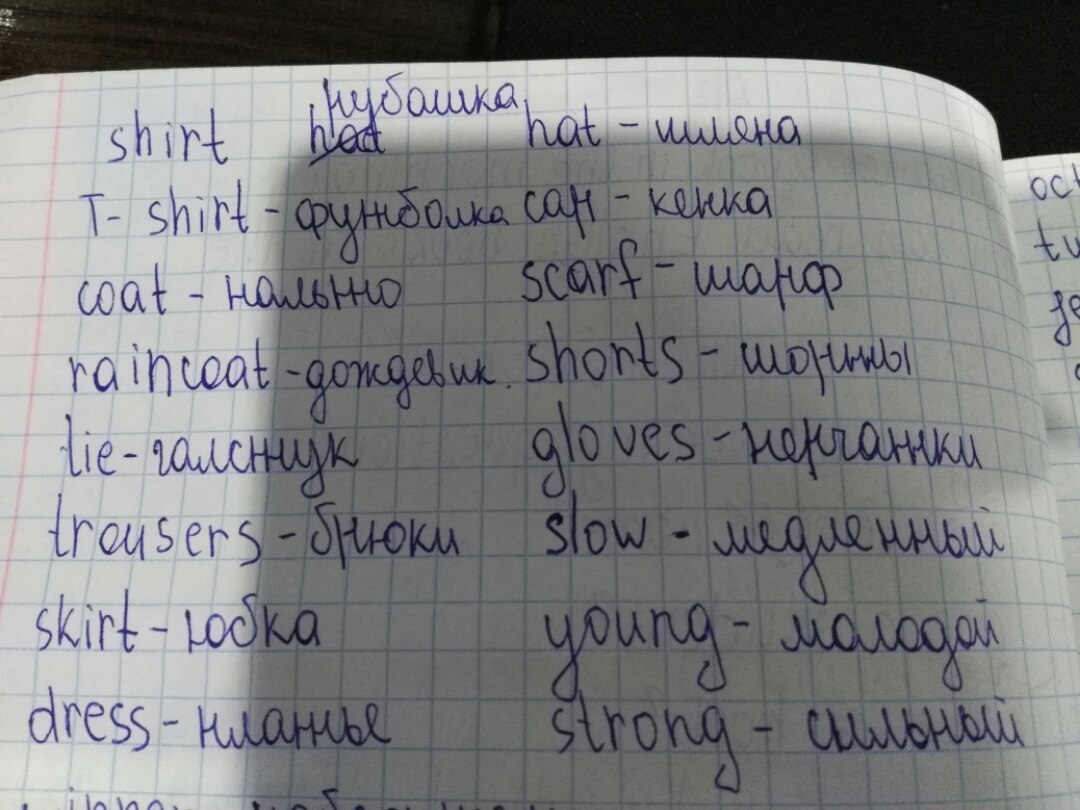 shirt рубашка hat - шляпа
T-shirt - футболка cap - кепка
coat - пальто scarf - шарф
raincoat - дождевик. shorts - шорты
tie - галстук gloves - перчатки
trousers - брюки slow - медленный
skirt - юбка young - молодой
dress - платье strong - сильный